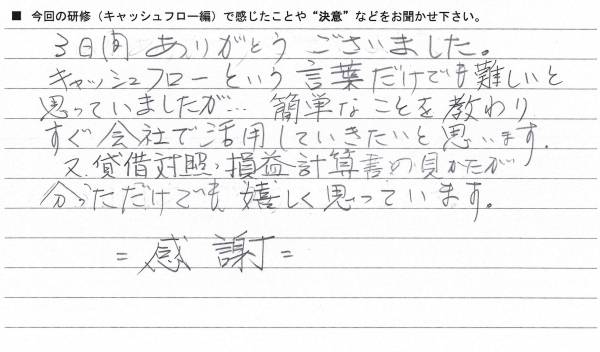 ■ 今回の研修（キャッシュフロー編）で感じたことや“決意”などをお聞かせ下さい。
3日間 ありがとう ございました。
キャッシュフローという言葉だけでも難しいと
思っていましたが… 簡単なことを教わり
すぐ会社で活用していきたいと思います.
又、貸借対照・損益計算書の見かたが
分っただけでも嬉しく思っています。
= 感謝 =